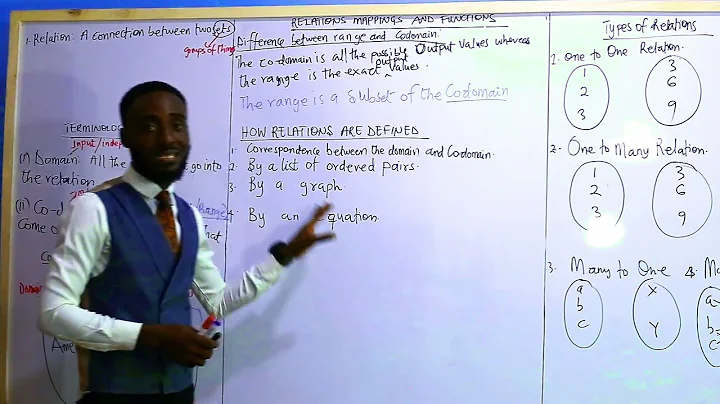 RELATIONS MAPPINGS AND FUNCTIONS
1. Relation: A connection between two sets
groups of things
TERMINOLO
Input/indep
(i) Domain: All the
go into
the relation
(ii) Co-d
(Range)
Come o
that
Co
Doma
Ame
Difference between range and Codomain.
The co-domain is all the possible output values whereas
the range is the exact output values.
The range is a Subset of the Codomain
HOW RELATIONS ARE DEFINED
1. Correspondence between the domain and Codomain.
2. By a list of ordered pairs.
3. By a graph.
4. By an equation.
Types of relations
1. One to One Relation.
1 3
2 6
3 9
2. One to Many Relation.
1 3
2 6
3 9
3. Many to One 4. Ma
a X a
b b
c Y c